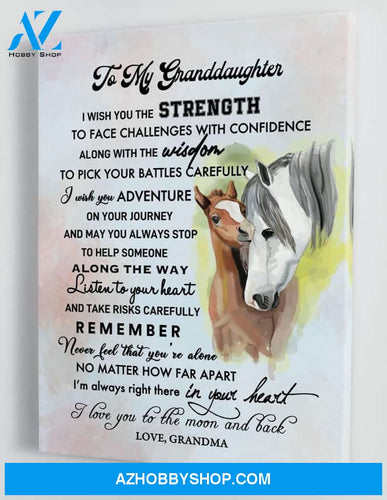 AZ
HOBBY SHOP
To My Granddaughter
I WISH YOU THE STRENGTH
TO FACE CHALLENGES WITH CONFIDENCE
ALONG WITH THE wisdom
TO PICK YOUR BATTLES CAREFULLY
I wish you ADVENTURE
ON YOUR JOURNEY
AND MAY YOU ALWAYS STOP
TO HELP SOMEONE
ALONG THE WAY
Listen to your heart
AND TAKE RISKS CAREFULLY
REMEMBER
Never feel that you're alone
NO MATTER HOW FAR APART
I'm always right there in your heart
I love you to the moon and back
LOVE, GRANDMA
AZHOBBYSHOP.COM